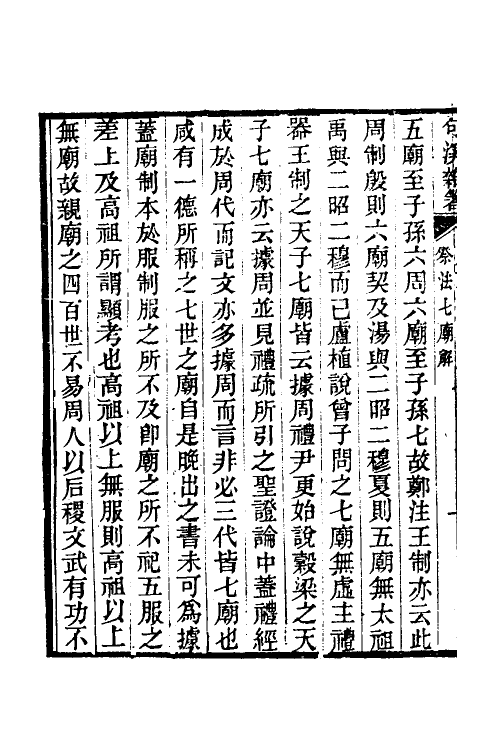 句溪雜著 祭法七廟解
五廟至子孫六周六廟至子孫七故鄭注王制亦云此
周制殷則六廟契及湯與二昭二穆夏則五廟無太祖
禹與二昭二穆而已盧植說曾子問之七廟無虛主禮
器王制之天子七廟皆云據周禮尹更始說穀梁之天
子七廟亦云據周並見禮疏所引之聖證論中蓋禮經
成於周代而記文亦多據周而言非必三代皆七廟也
咸有一德所稱之七世之廟自是晚出之書未可為據
蓋廟制本於服制服之所不及卽廟之所不祀五服之
差上及高祖所謂顯考也高祖以上無服則高祖以上
無廟故親廟之四百世不易周人以后稷文武有功不